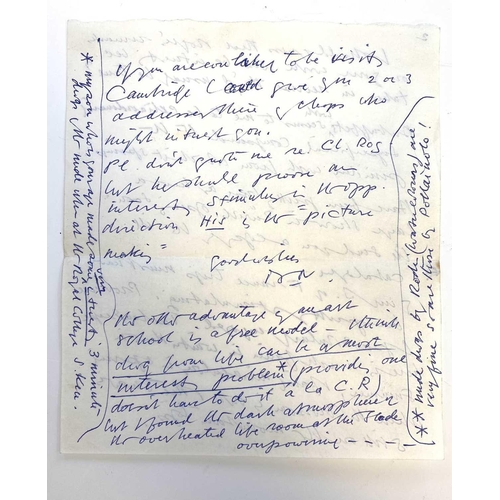 If you are ever likely to be visiting
Cambridge I could give you 2 or 3
addresses there of chaps who
might interest you.
Pl. don't quote me re. Cl. Rog
but he should prove an
interesting stimulus in the opp.
direction His is the "picture
making" good wishes
The other advantage of an art
school is a free model - I think
dwg from life can be a most
interesting problem* (providing one
doesn't have to do it à la C.R)
but I found the dark atmosphere in
the overheated life room at the Slade
overpowering - - - -
* my son who is your age made some very interesting 3 minute
dwgs of the nude when at the Royal College S Ken.
(** nude dwgs by Rodin (watercolours) are
very fine so are those by Pollaiuolo!